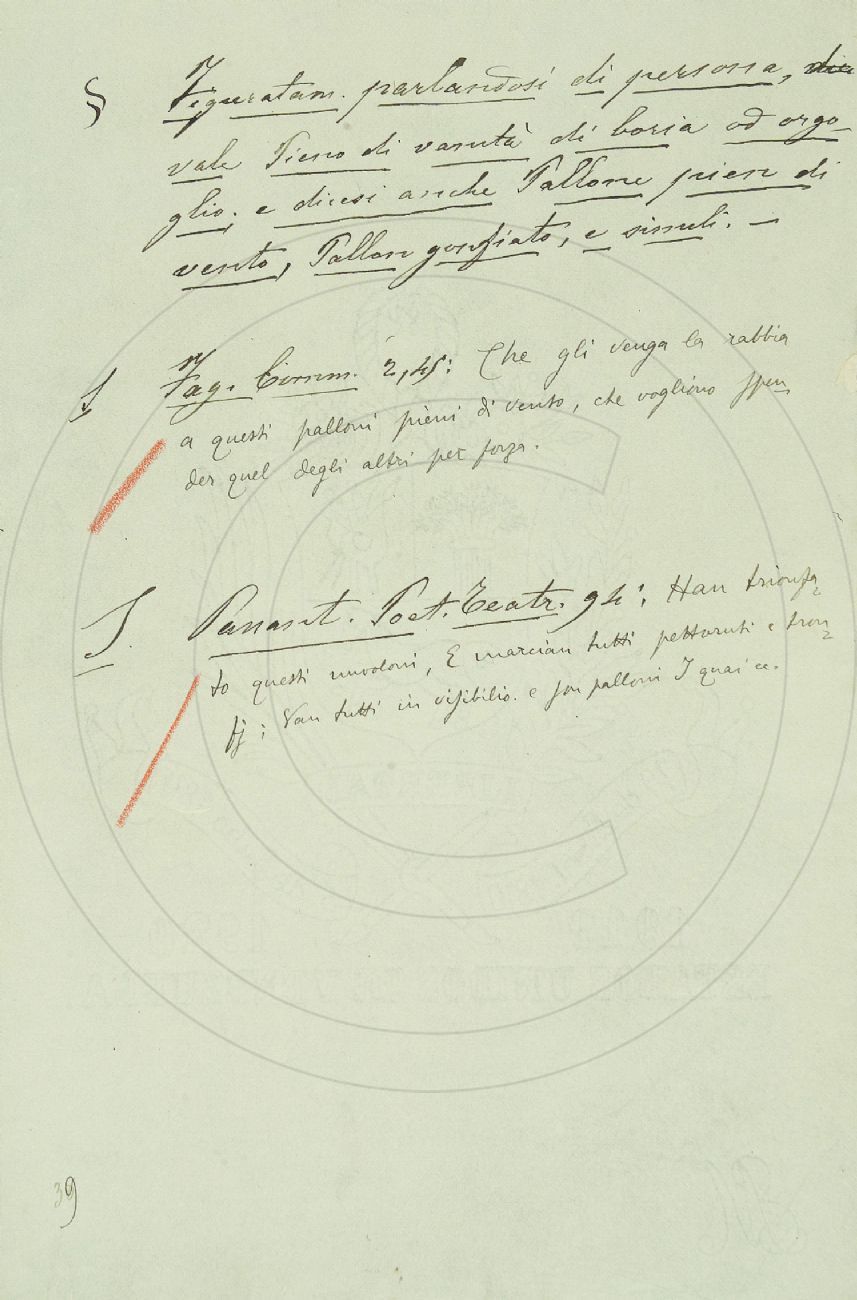 § Figuratam. parlandosi di persona, dic
vale Pieno di vanità di boria od orgo-
glio; e dicesi anche Pallone pien di
vento, Pallon gonfiato, e simili. —
Fag. Comm. 2, 45: Che gli venga la rabbia
a questi palloni pieni di vento, che vogliono spen-
der quel degli altri per forza.
Pananst. Poet. Teatr. 94: Han trionfa-
to questi nuvoloni, E marcian tutti pettoruti e tron-
fj; Van tutti in visibilio. e son palloni I quai ec.
39